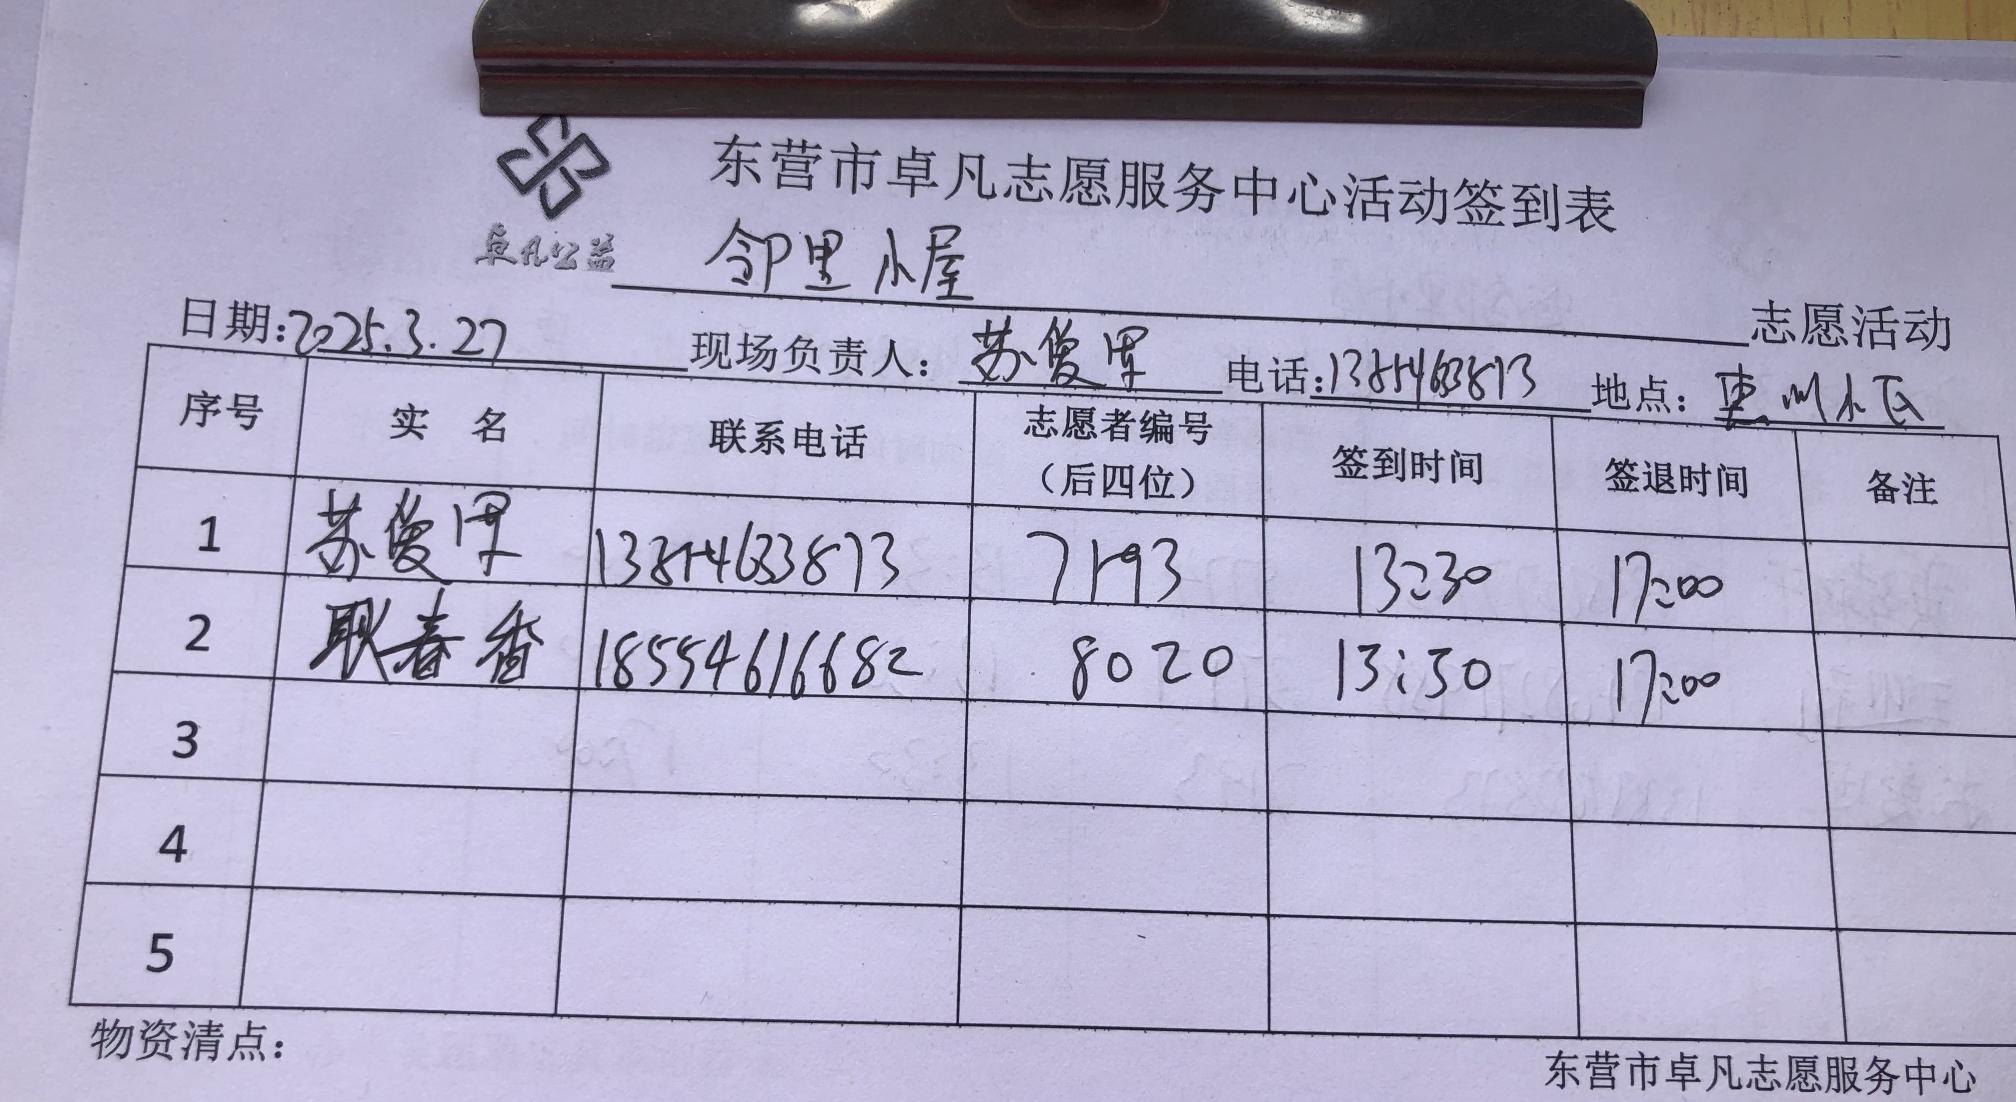 东营市卓凡志愿服务中心活动签到表
卓凡公益
邻里小屋 志愿活动
日期:2025.3.27 现场负责人: 苏俊军 电话:13854633873 地点: 惠州小区
序号 实 名 联系电话 志愿者编号（后四位） 签到时间 签退时间 备注
1 苏俊军 13854633873 7193 13:30 17:00
2 耿春香 18554616682 8020 13:30 17:00
3
4
5
物资清点:
东营市卓凡志愿服务中心